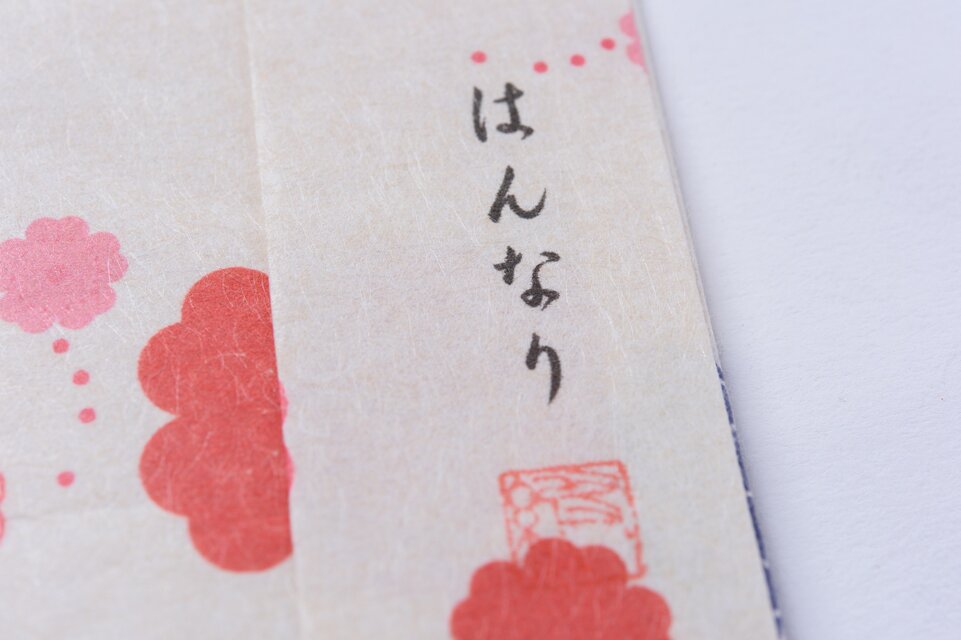 はんなり